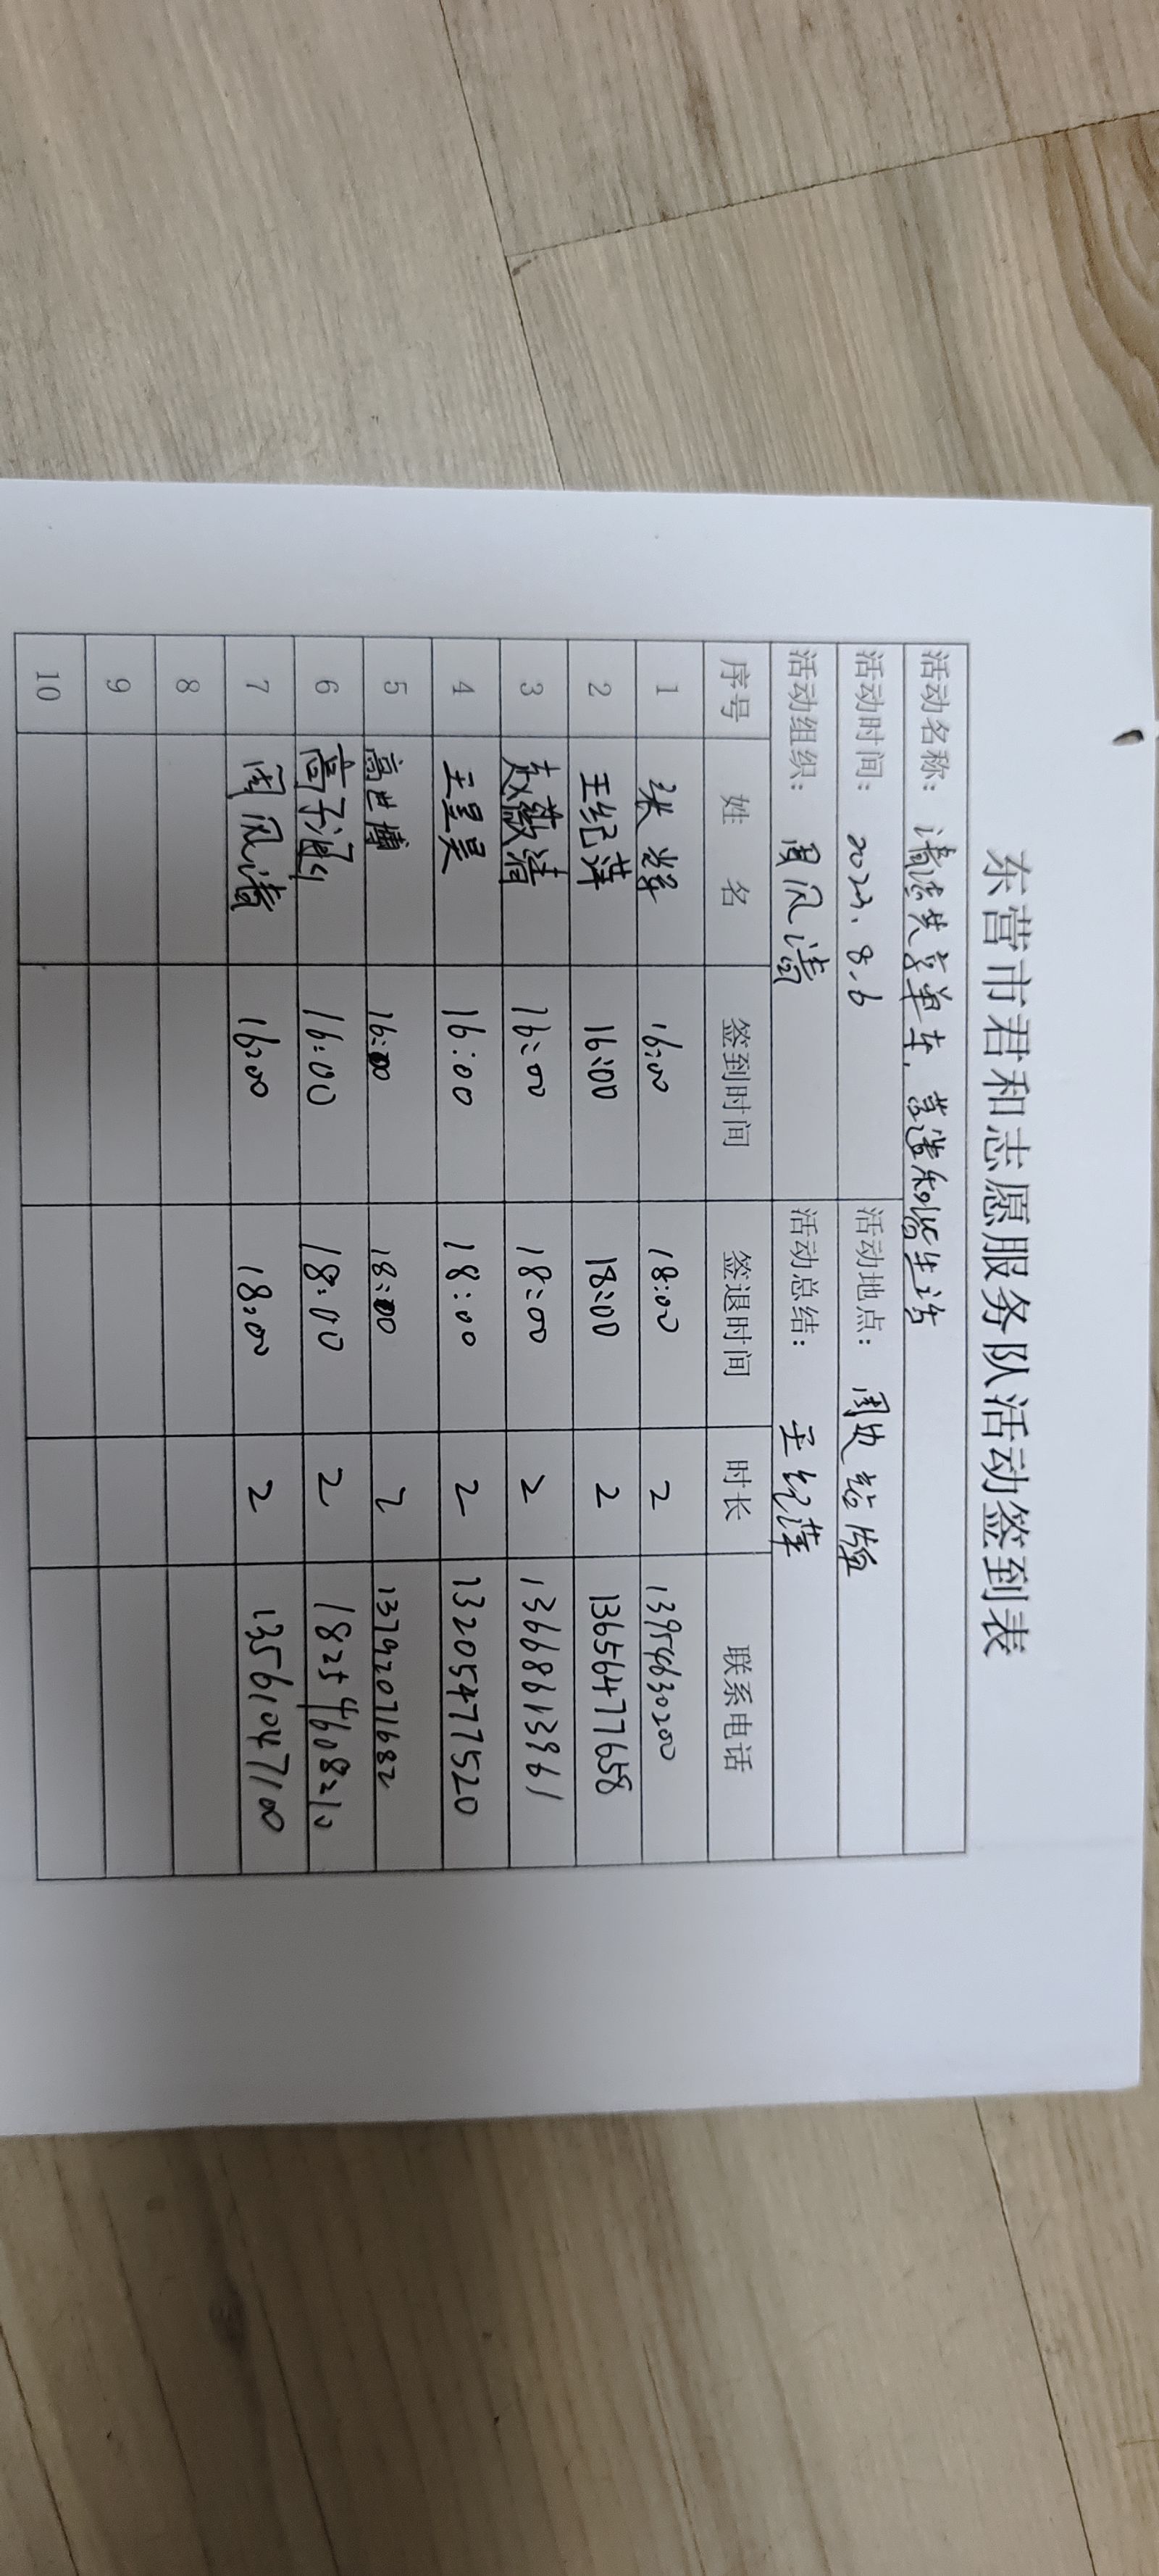 东营市君和志愿服务队活动签到表
活动名称：清洁共享单车，营造和谐生活
活动时间：2023.8.6 活动地点：周边
活动组织：周风清 活动总结：王纪萍
序号 姓名 签到时间 签退时间 时长 联系电话
1 张辉 16:00 18:00 2 13954630200
2 王纪萍 16:00 18:00 2 13656477658
3 赵薇清 16:00 18:00 2 13668613961
4 王昱昊 16:00 18:00 2 13205477520
5 高世博 16:00 18:00 2 13792071682
6 高子涵 16:00 18:00 2 18254608210
7 周风清 16:00 18:00 2 13561047100
8
9
10